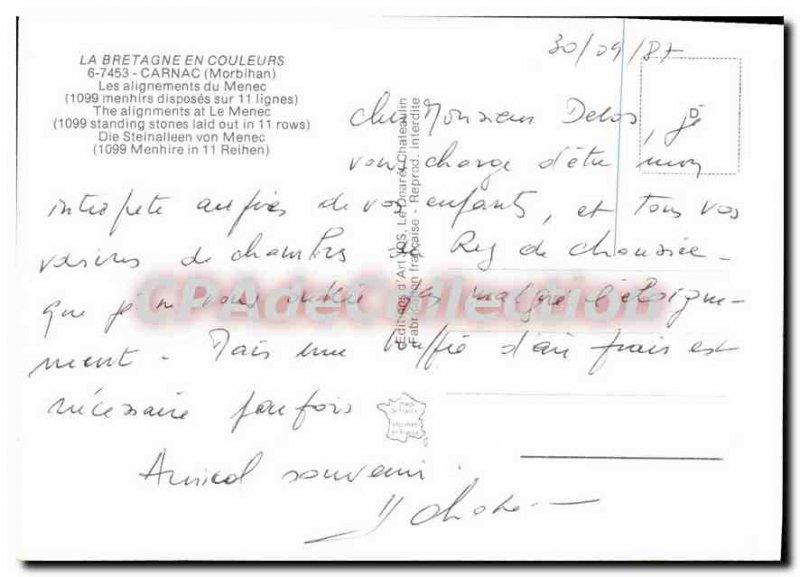 LA BRETAGNE EN COULEURS
6-7453 - CARNAC (Morbihan)
Les alignements du Menec
(1099 menhirs disposés sur 11 lignes)
The alignments at Le Menec
(1099 standing stones laid out in 11 rows)
Die Steinalleen von Menec
(1099 Menhire in 11 Reihen)
30/09/87
Cher Monsieur Delos, je
vous charge d'être mon
interprete auprès de vos enfants, et tous vos
voisins de chambres de Rez de chaussée -
que je ne vous oublie pas malgré l'éloigne-
ment - Mais une bouffée d'air frais est
nécessaire parfois
Amical souvenir.
Editions d'Art JOS, Le Doaré, Chateaulin
Fabrication française - Reprod. interdite
CPAdeCollection